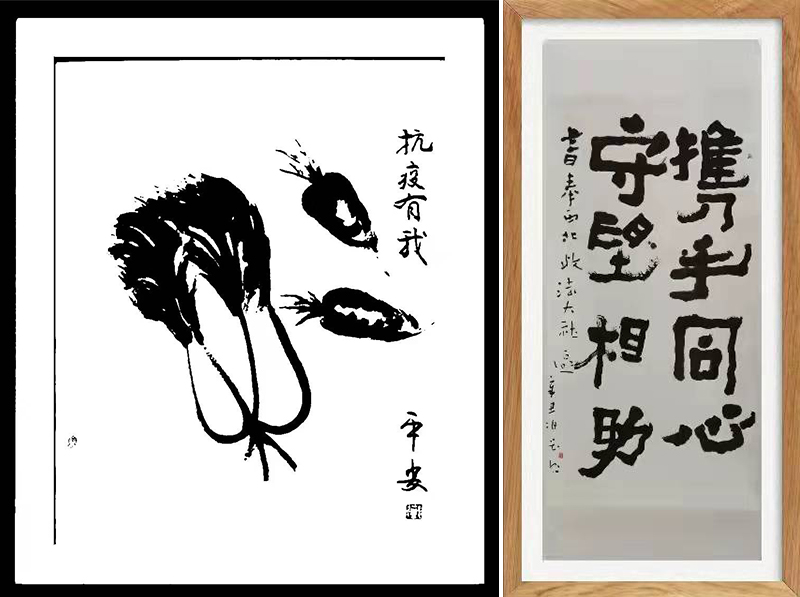 抗疫有我
平安
携手同心
守望相助
书奉西北政法大社区